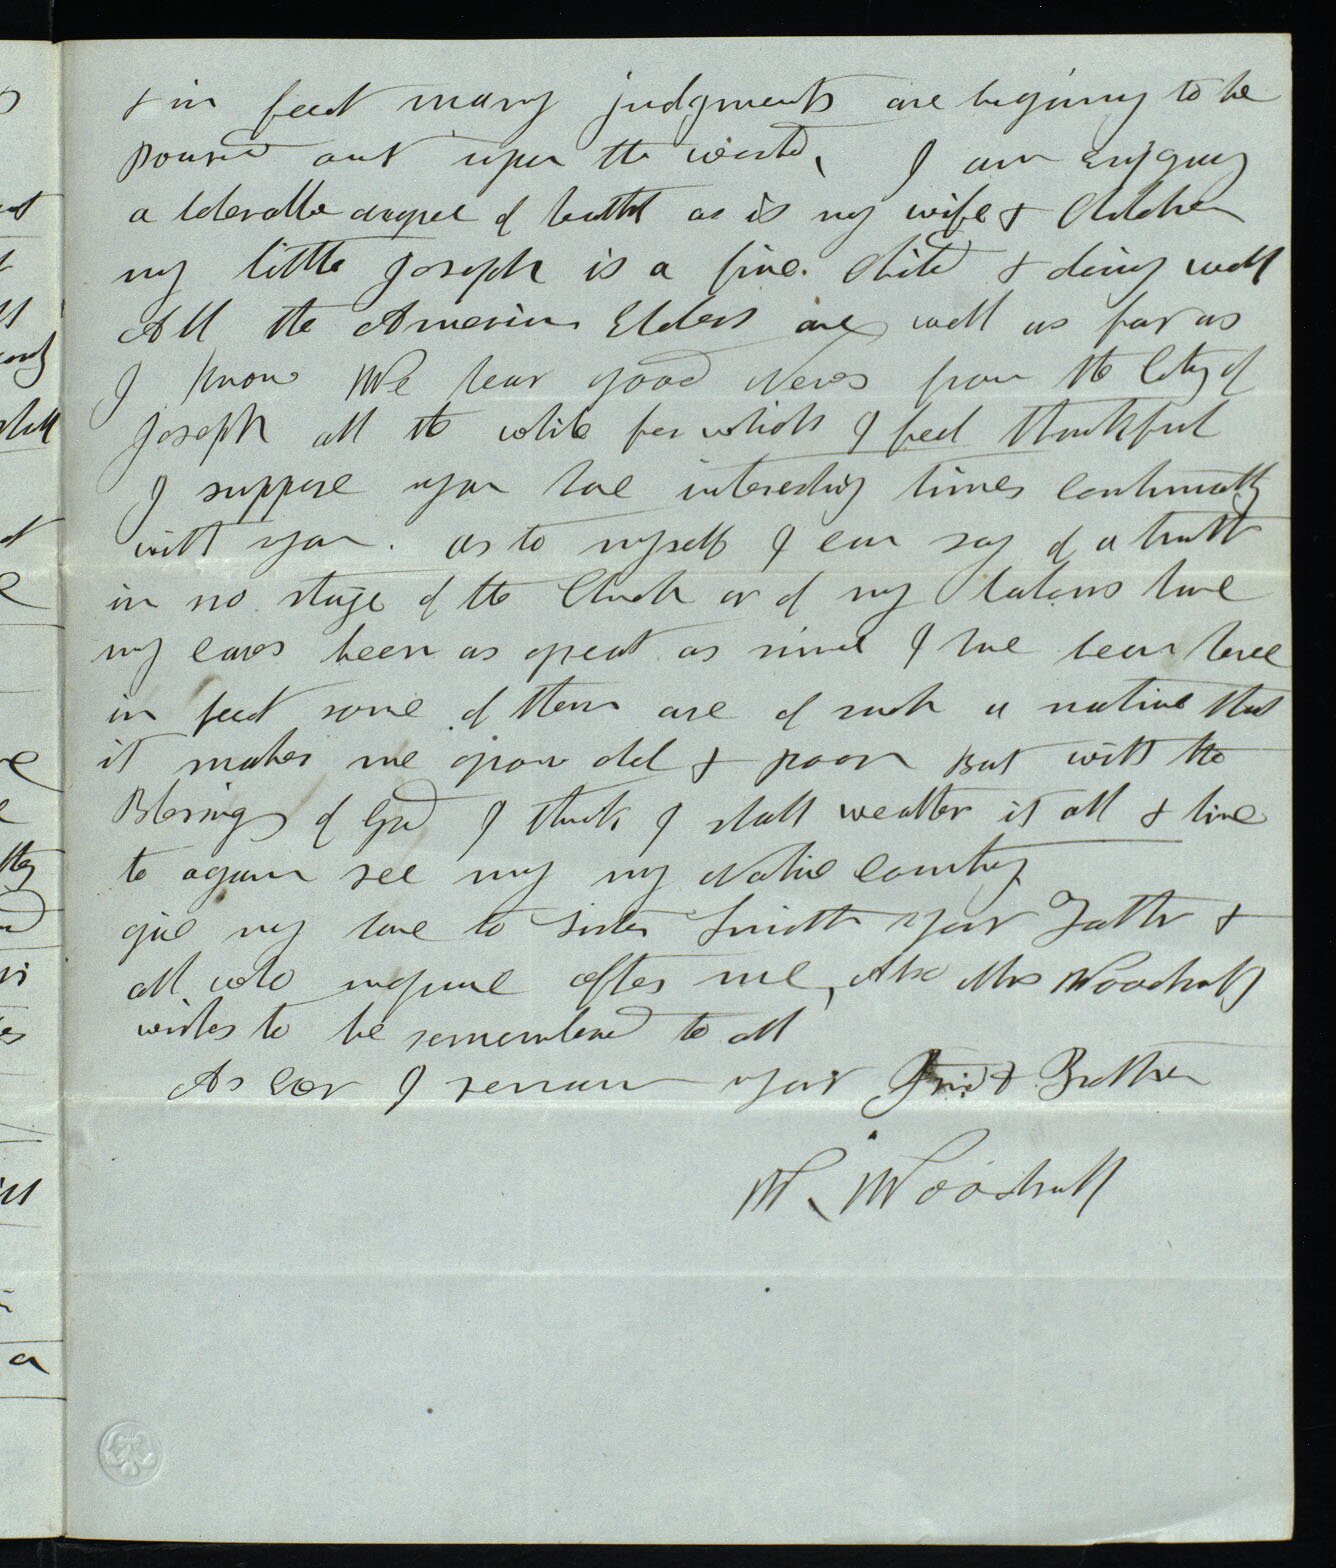 & in fact many judgments are begining to be
poured out upon the world, I am enjoying
a tolerable degree of health as is my wife & Children
my little Joseph is a fine Child & doing well
All the American Elders are well as far as
I know We hear good News from the City of
Joseph all the while for which I feel thankful
I suppose you have interesting times continually
with you. as to myself I can say of a truth
in no stage of the Church or of my labors have
my cares been as great as since I have been here
in fact some of them are of such a nature that
it makes me grow old & poor But with the
Blessings of God I think I shall weather it all & live
to again see my my Native Country
give my love to Sister Smith your Father &
all who inquire after me, Also Mrs Woodruff
wishes to be remembered to all
As ever I remain your Friend & Brother
W. Woodruff